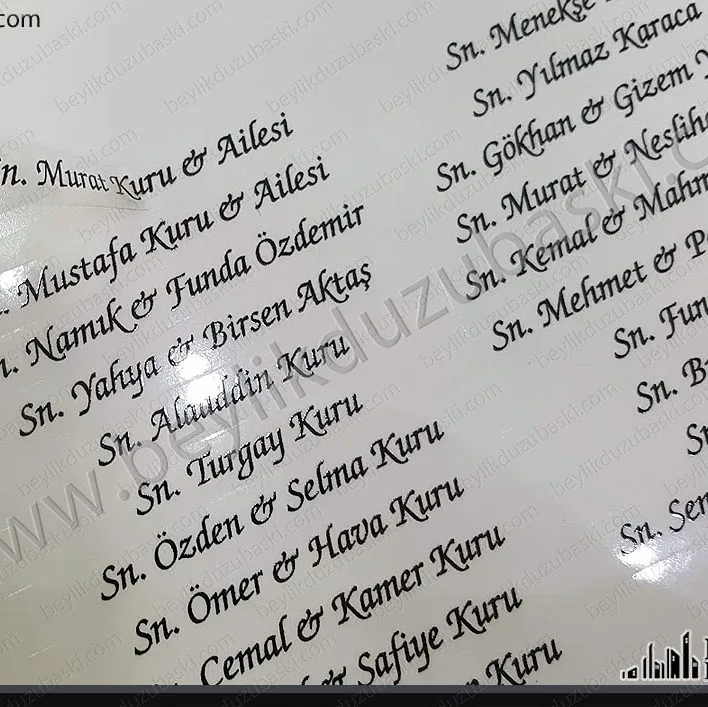 .com
Sn. Murat Kuru & Ailesi
Mustafa Kuru & Ailesi
Namık & Funda Özdemir
Sn. Yahya & Birsen Aktaş
Sn. Alauddin Kuru
Sn. Turgay Kuru
Sn. Özden & Selma Kuru
Sn. Ömer & Hava Kuru
Cemal & Kamer Kuru
& Safiye Kuru
Kuru
Sn. Menekşe
Sn. Yılmaz Karaca
Sn. Gökhan & Gizem
Sn. Murat &
Sn. Kemal &
Sn. Mehmet &
Sn.
Sn.
Sn.
www.beylikduzubaski.com